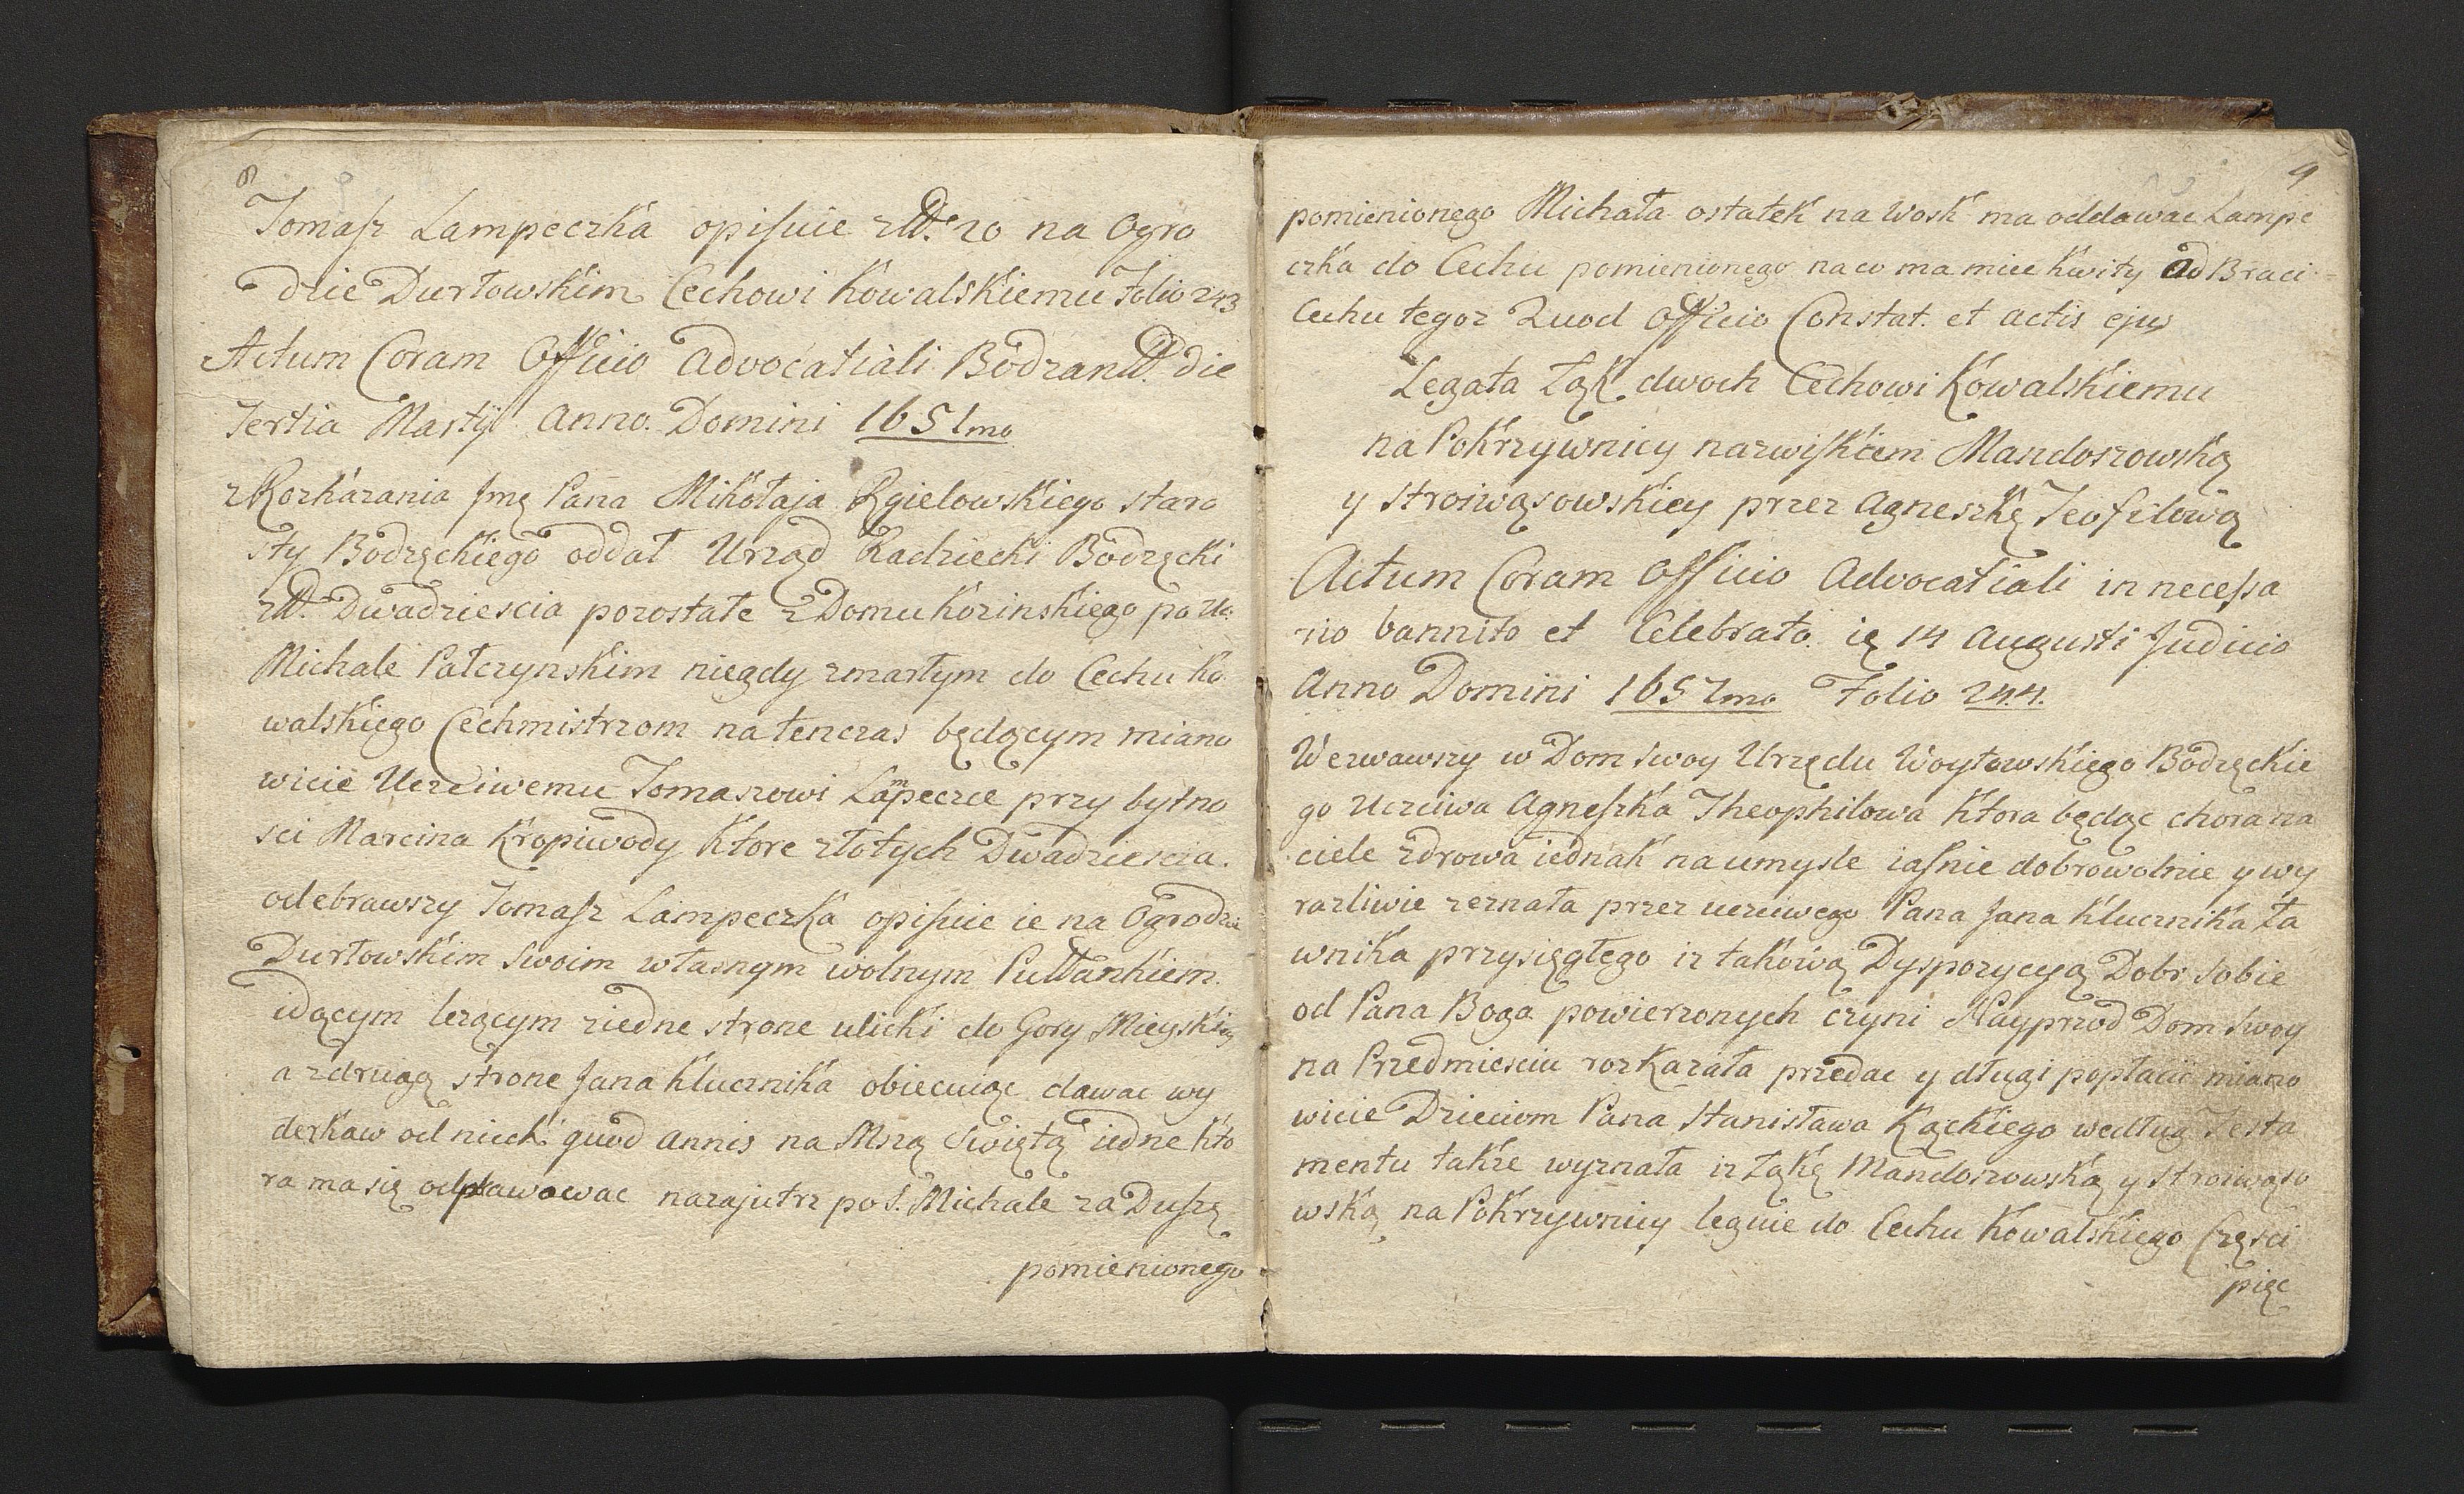 8
Tomasz Lampeczka opisuie złł. 20 na Ogro
dzie Durłowskim Cechowi Kowalskiemu Folio 243
Actum Coram Officio Advocatiali Bodzanłł. die
Tertia Martij Anno. Domini 1651mo
z Rozkazania Jmę Pana Mikołaja Zgielowskiego staro
sty Bodzęckiego oddał Urząd Radziecki Bodzęcki
złł. Dwadziescia pozostałe z Domu Kozinskiego po
Michale Patczynskim niegdy zmarłym do Cechu Ko
walskiego Cechmistrzom na tenczas będącym miano
wicie Uczciwemu Tomaszowi Lampeczce przy bytno
sci Marcina Kropiwody ktore złotych Dwadziescia.
odebrawszy Tomasz Lampeczka opisuie ie na Ogrodzie
Durłowskim swoim własnym wolnym Pułłankiem.
idącym lezącym ziedne strone ulicki do Gory Mieyskiey
a zdrugą strone Jana Klucznika obiecuiąc dawac wy
derkaw od niech quod annis na Mszą Swiętą iedne kto
ra ma się odprawowac nazajutrz po S. Michale za Duszę
pomienionego
9
pomienionego Michała ostatek na Wosk ma oddawac Lampe
czka do Cechu pomienionego na co ma miec kwity od Braci
Cechu tegoz Quod Officio Constat. et actis ejus
Legata Łąk dwoch Cechowi Kowalskiemu
na Pokrzywnicy nazwiskiem Mandoszowską
y Stroiwąsowskiey przez Agneszkę Teofilową
Actum Coram Officio Advocatiali in necessa
rio bannito et Celebrato. ię 14 Augusti Judicio
Anno Domini 1657mo Folio 244.
Wezwawszy w Dom swoy Urzędu Woytowskiego Bodzęckie
go Uczciwa Agneszka Theophilowa ktora będąc chora na
ciele zdrowa iednak na umysle iasnie dobrowolnie y wy
razliwie zeznała przez uczciwego Pana Jana Klucznika ła
wnika przysięgłego iz takową Dyspozycyą Dobr sobie
od Pana Boga powierzonych czyni Nayprzod Dom swoy
na Przedmiesciu rozkazała przedac y długi popłacic miano
wicie Dzieciom Pana Stanisława Kąckiego według Testa
mentu także wyznała iz łąkę Mandoszowską y Stroiwąso
wską na Pokrzywnicy leguie do Cechu Kowalskiego Częsci
pięc